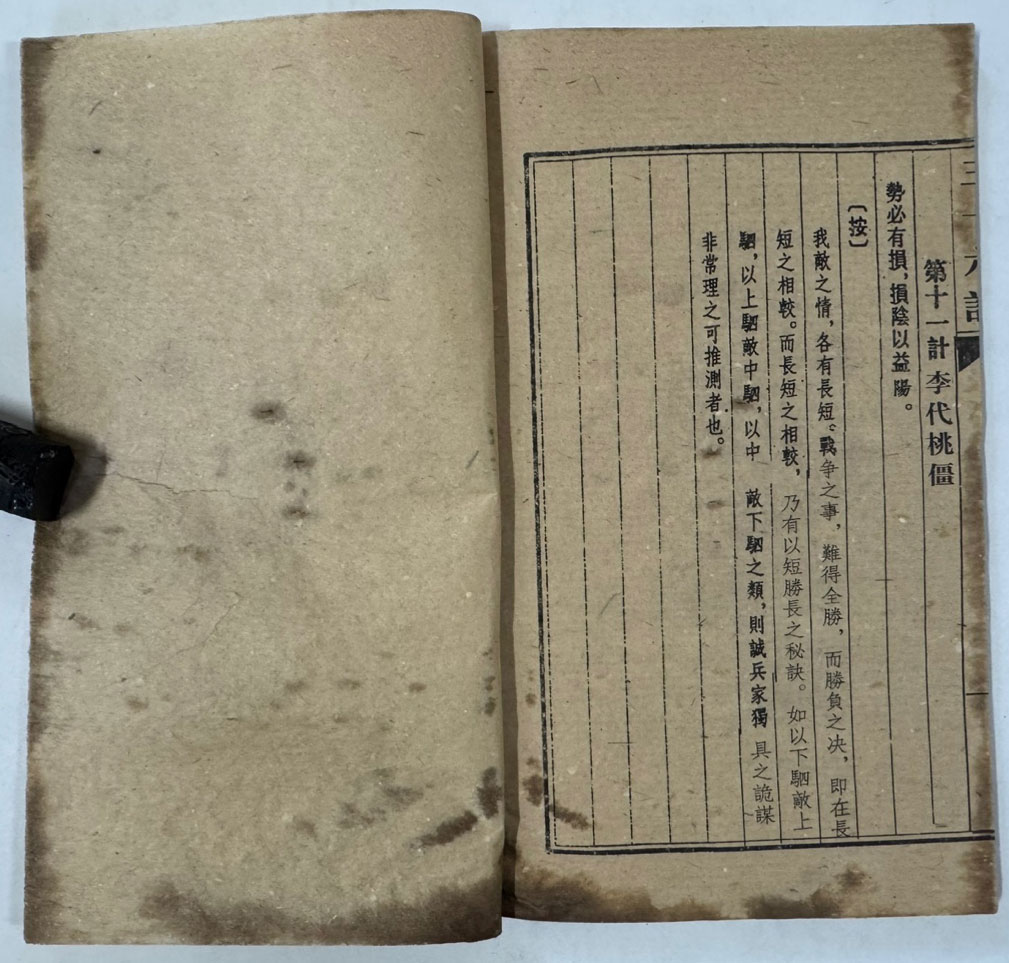 三十六計
第十一計 李代桃僵
勢必有損，損陰以益陽。
〔按〕
我敵之情，各有長短。戰争之事，難得全勝，而勝負之决，即在長
短之相較。而長短之相較，乃有以短勝長之秘訣。如以下駟敵上
駟，以上駟敵中駟，以中 敵下駟之類，則誠兵家獨具之詭謀
非常理之可推測者也。